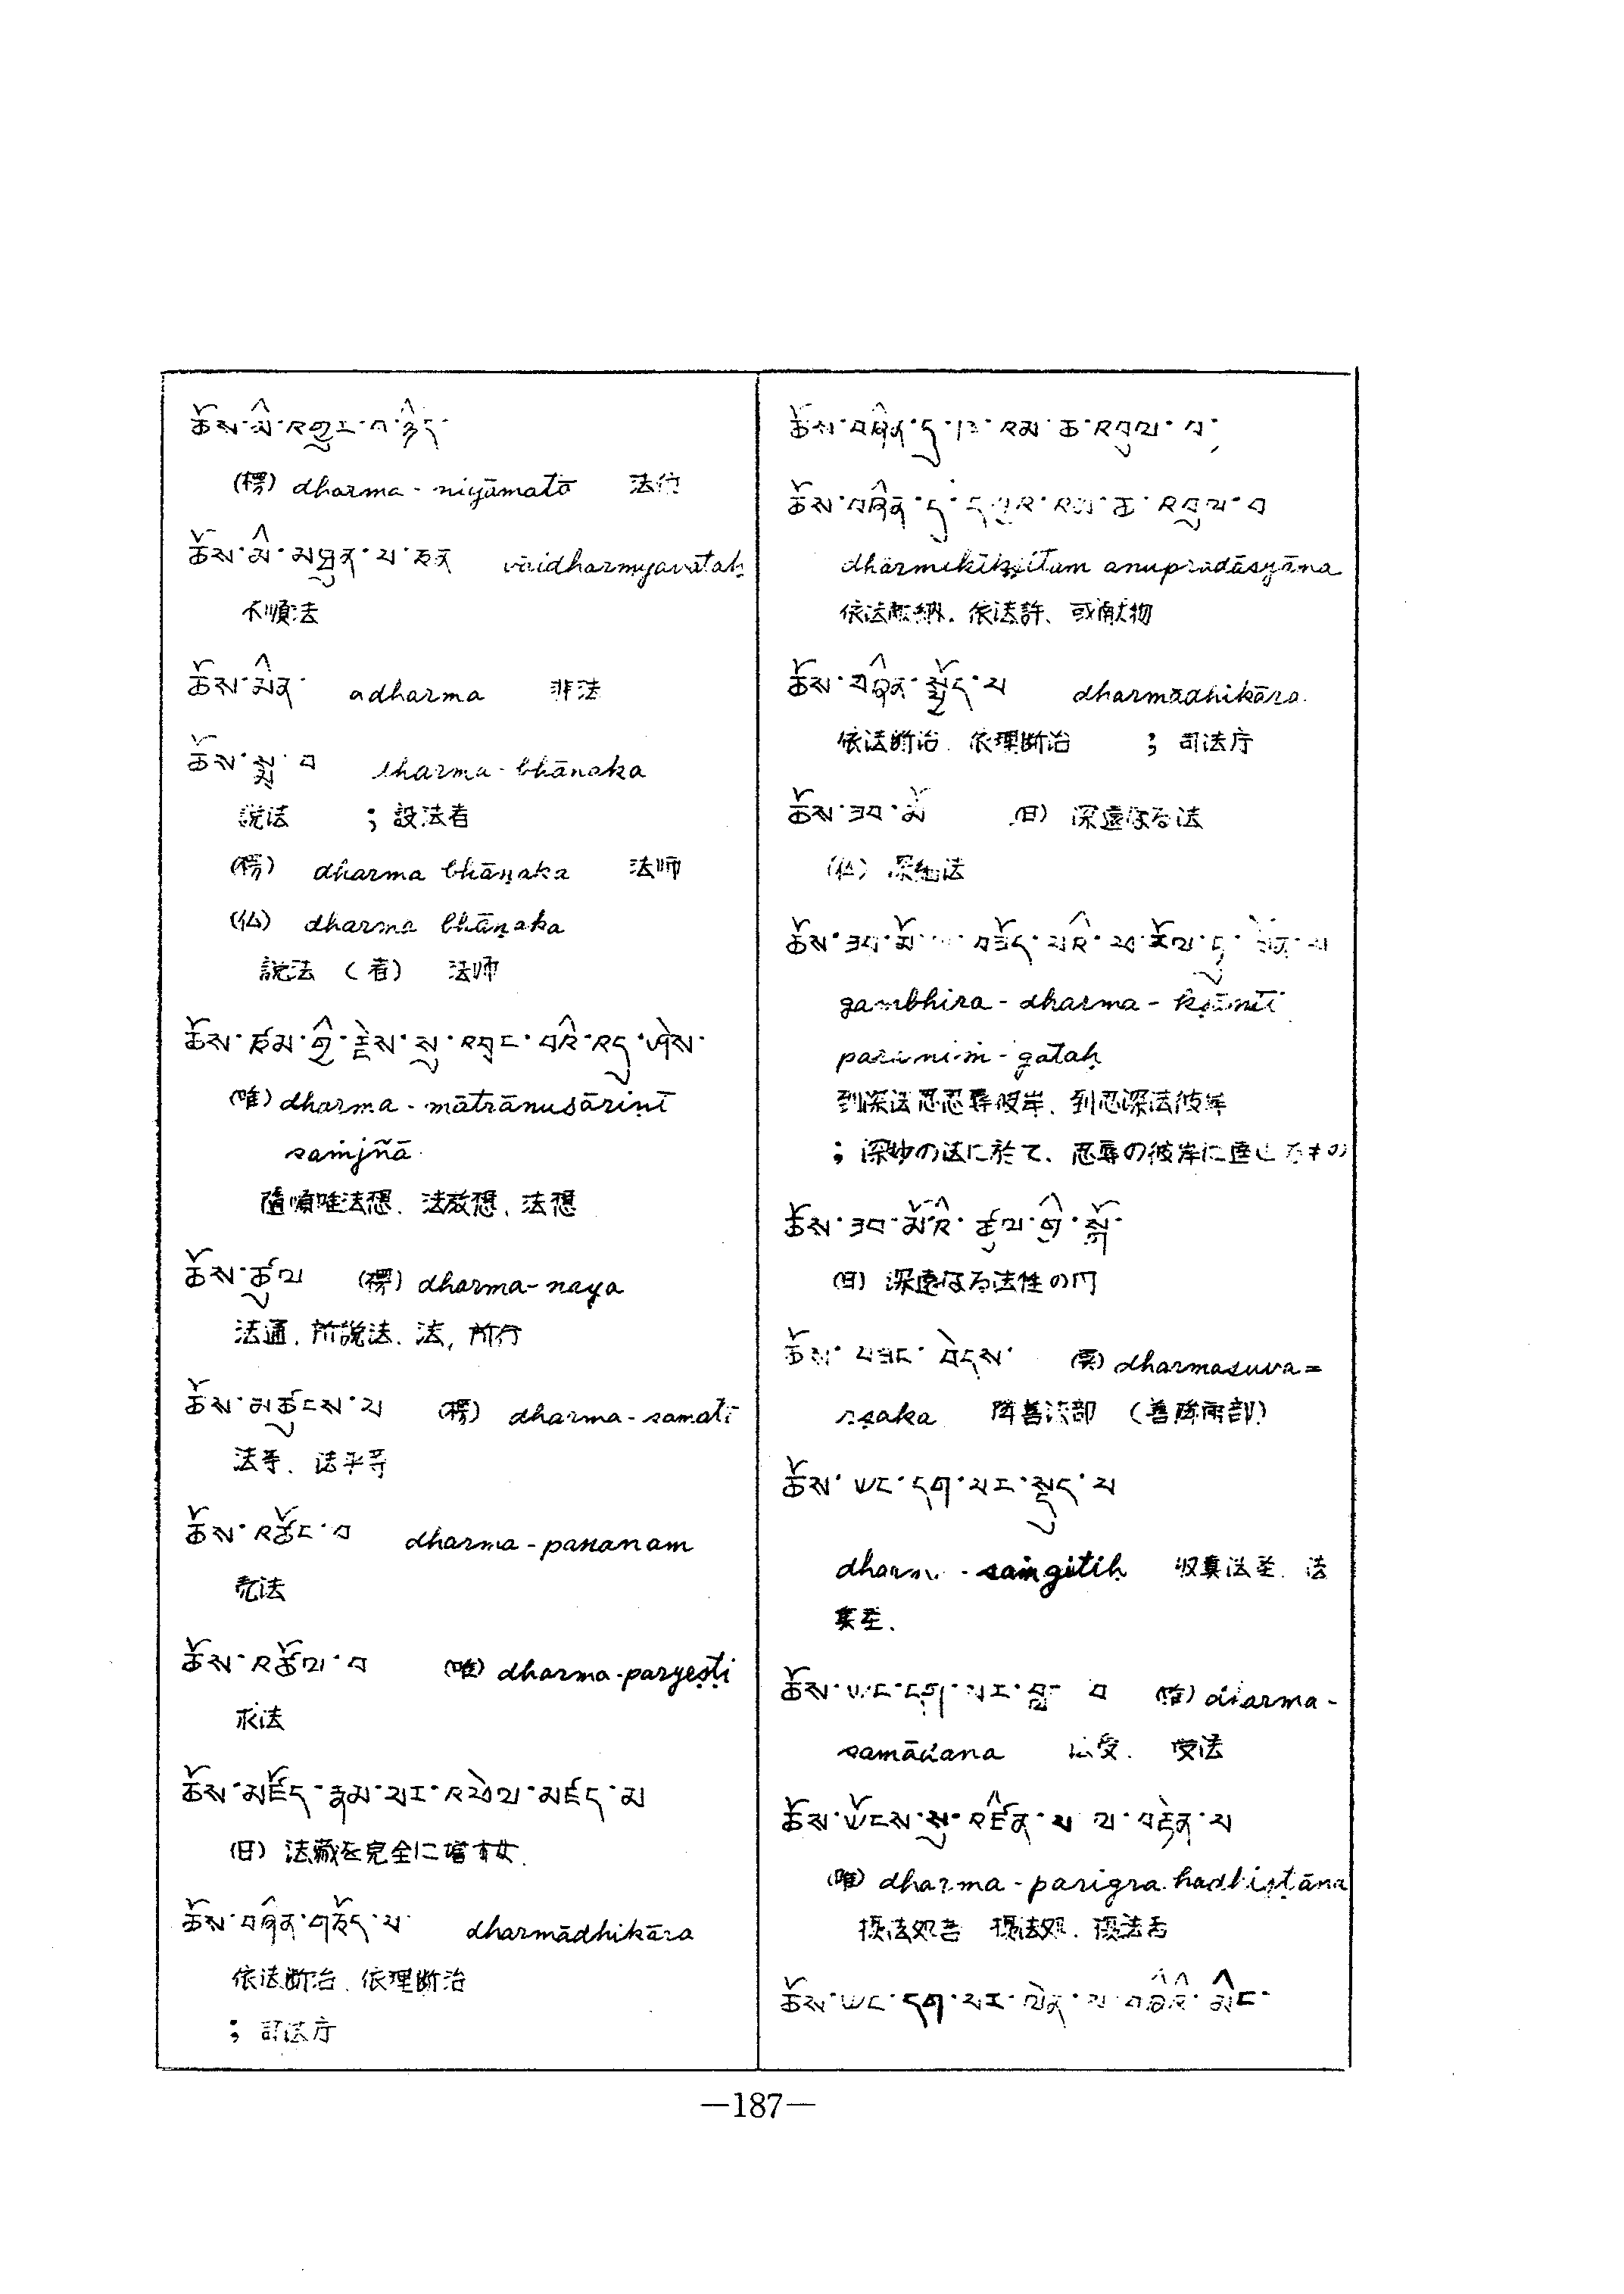 ཆོས་མི་འགྱུར་བ་ཉིད་
(楞) dharma - niyāmatā 法位
ཆོས་མི་མཐུན་པ་ཅན vaidharmyavataḥ
不順法
ཆོས་མིན་ adharma 非法
ཆོས་སྨྲ་བ dharma - bhānaka
説法 ; 説法者
(楞) dharma bhāṇaka 法师
(仏) dharma bhāṇaka
説法 (者) 法师
ཆོས་ཙམ་གྱི་རྗེས་སུ་འབྲང་བའི་འདུ་ཤེས་
(唯) dharma - mātrānusāriṇī
saṁjñā
隨順唯法想、法放想、法想
ཆོས་ཚུལ (楞) dharma - naya
法通、所説法、法, 所行
ཆོས་མཚུངས་པ (楞) dharma - samatā
法等、法平等
ཆོས་འཚོང་བ dharma - pananam
売法
ཆོས་འཚོལ་བ (唯) dharma - paryeṣṭi
求法
ཆོས་མཛོད་རྣམ་པར་འཕེལ་མཛད་མ
(日) 法藏を完全に増す女
ཆོས་བཞིན་གཅོད་པ་ dharmādhikāra
依法断治、依理断治
; 司法庁
ཆོས་བཞིན་དུ་འམ་ཆ་འབུལ་བ
ཆོས་བཞིན་དུ་དཔྱའ་འམ་ཆ་འབུལ་བ
anupradāsyāna
依法献納、依法許、或献物
ཆོས་བཞིན་སྤྱོད་པ dharmādhikāra
依法断治、依理断治 ; 司法庁
ཆོས་ཟབ་མོ (日) 深遠なる法
(仏) 深細法
ཆོས་ཟབ་མོ་ལ་བཟོད་པའི་ཕ་རོལ་ཏུ་སོན་པ
gambhira - dharma - kṣānti
gataḥ
到深法忍忍辱彼岸、到忍深法彼岸
; 深妙の法に於て、忍辱の彼岸に達したもの
ཆོས་ཟབ་མོའི་ཚུལ་གྱི་སྒོ་
(日) 深遠なる法性の门
ཆོས་བཟང་འབེབས་ dharmasuva =
rṣaka 降善法部 (善降雨部)
ཆོས་ཡང་དག་པར་སྡུད་པ
dharma - saṁgītiḥ 収真法圣、法
集圣、
ཆོས་ཡང་དག་པར་བླང་བ (唯) dharma -
samādana 法受、 受法
ཆོས་ཡོངས་སུ་འཛིན་པ་ལ་བརྟེན་པ
(唯) dharma - parigra hadhiṣṭāna
摄法処 摄法処、摄法
ཆོས་ཡང་དག་པར་ལེན་པ་བཞིའི་མིང་
—187—